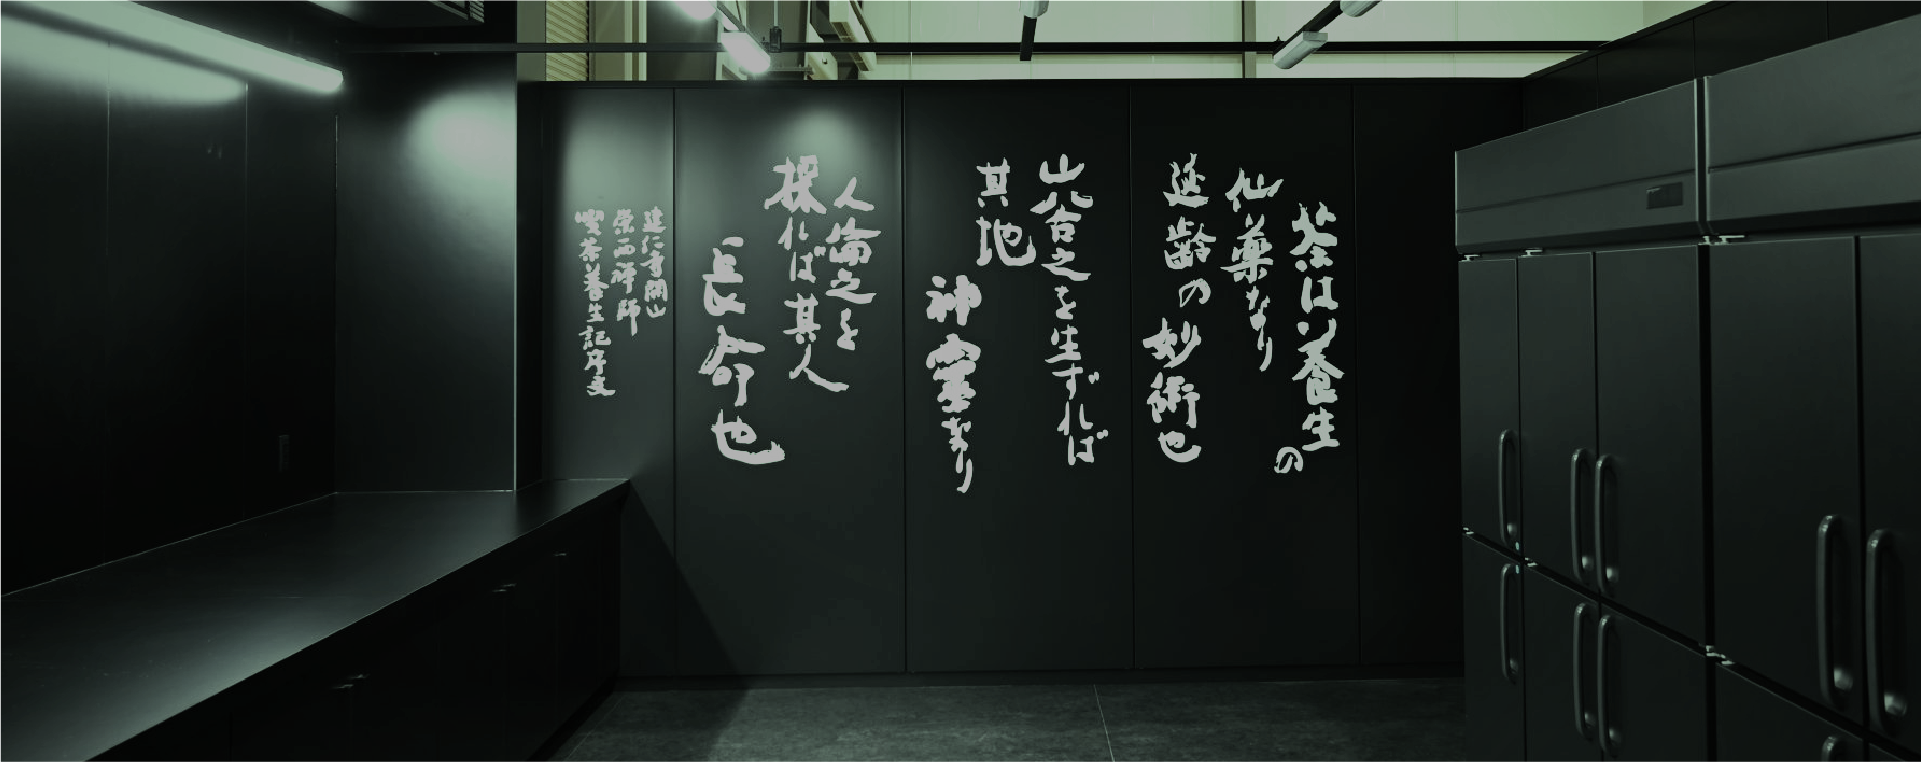 茶は養生の
仙薬なり
延齢の妙術也
山谷之を生ずれば
其地
神霊なり
人倫之を
採れば其人
長命也
建仁寺開山
栄西禅師
喫茶養生記序文